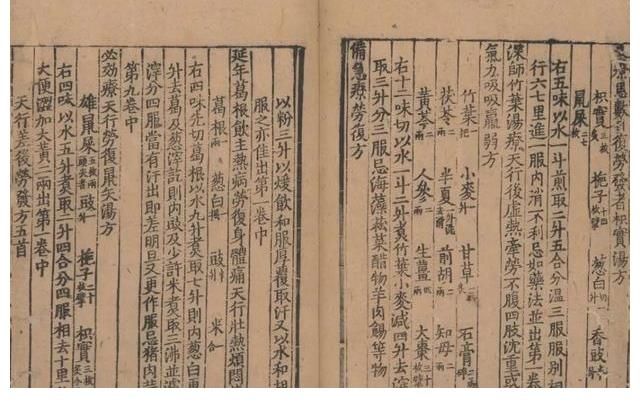 數日復勞發者枳實湯方
枳實三枚炙 梔子十四枚擘 葱白切一升 香豉
鼠屎二七
右五味以水一斗煎取二升五合分溫三服服別相
行六七里進一服內消不利忌如藥法並出第一卷
深師竹葉湯療天行後虛熱牽勞不腹四肢沈重或
氣力吸吸羸弱方
竹葉把 小麥升 甘草 石膏兩
茯苓二兩 半夏 前胡二兩 知母二兩
黃芩二兩 人參二兩 生薑四兩 大棗二十枚擘
右十二味切以水一斗二升煑竹葉小麥減四升去滓
取三升分三服忌海藻菘菜醋物羊肉餳等物
備急療勞復方
以粉三升以煖飲和服厚覆取汗又以水和
服之亦佳出第一卷中
延年葛根飲主熱病勞復身體痛天行壯熱煩悶
葛根一兩 葱白握 豉升 米合
右四味先切葛根以水九升煑取七升則內葱白更
升去葛及葱滓訖則內豉及少許米煑取三沸並
滓分四服當有汗出即差明旦又更作服忌豬肉
第九卷中
必效療天行勞復鼠矢湯方
雄鼠屎五枚兩頭尖者 豉升 梔子二十枚擘 枳實三枚炙
右四味以水五升煑取二升四合分四服相去十里
大便澀加大黃二兩出第一卷中
天行差後勞發方五首